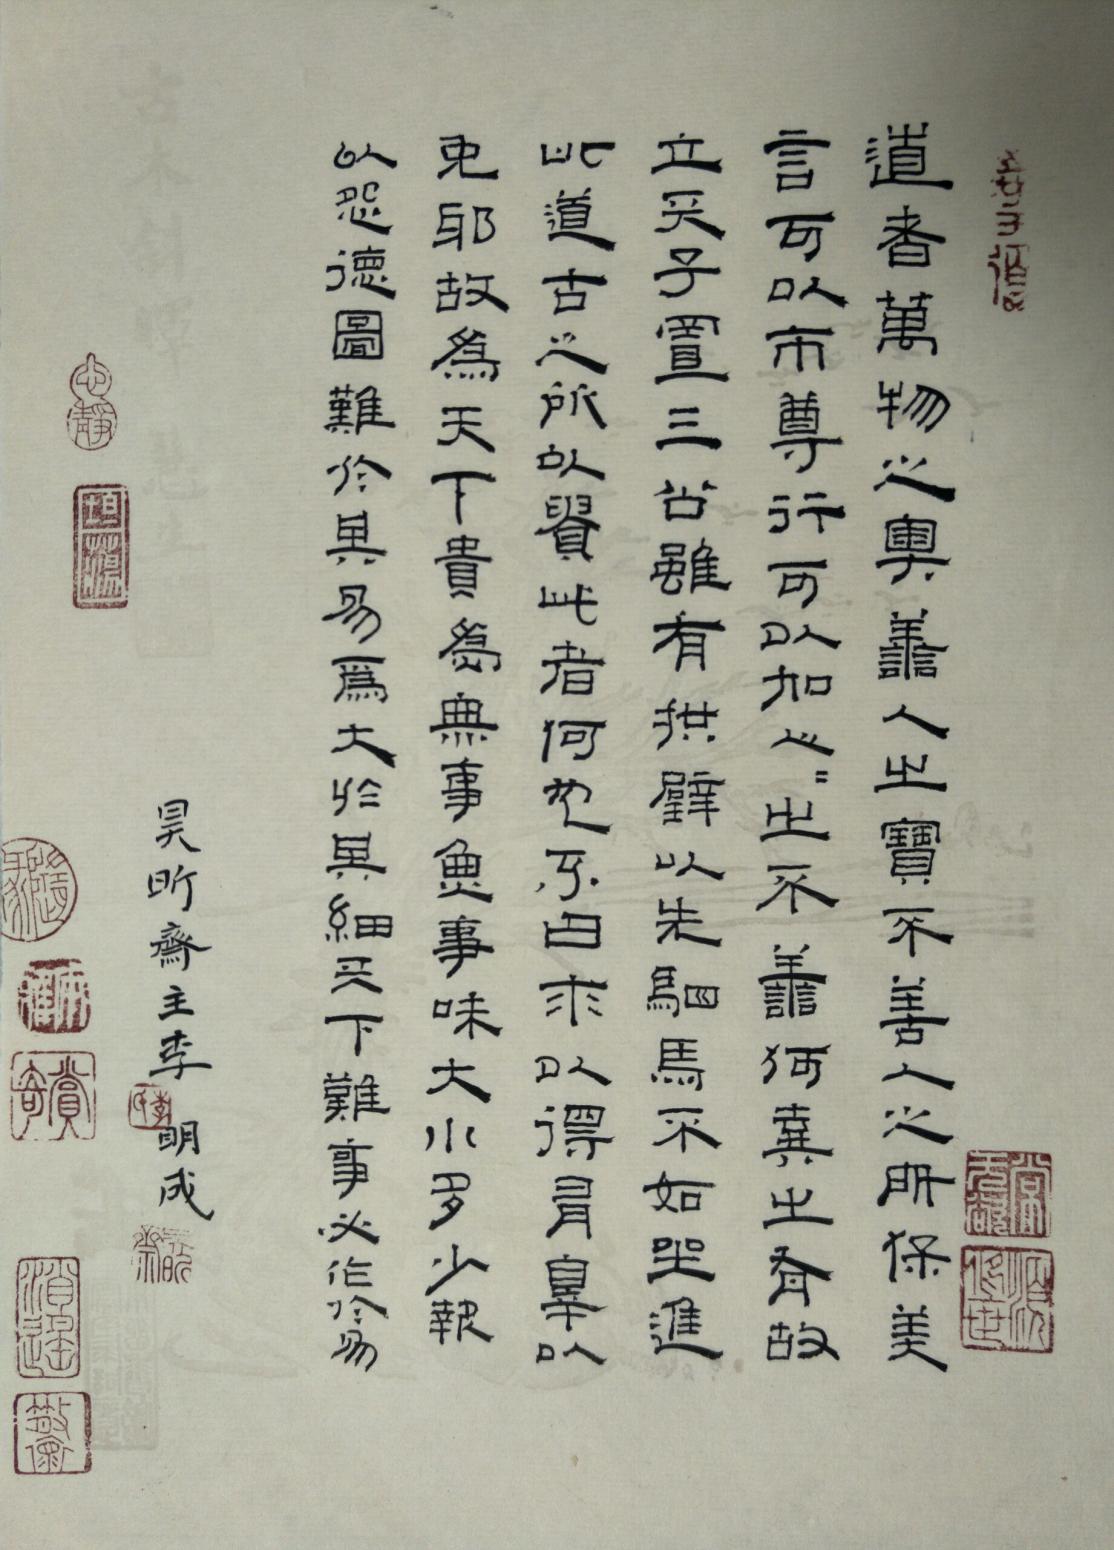 道者萬物之奧善人之寶不善人之所保美
言可以市尊行可以加人〻之不善何棄之有故
立天子置三公雖有拱璧以先駟馬不如坐進
此道古之所以貴此者何也不曰求以得有辠以
免耶故為天下貴為無事無事味大小多少報
以怨德圖難於其易爲大於其細天下難事必作於易
昊昕齋主李明成
坦蕩
賞奇